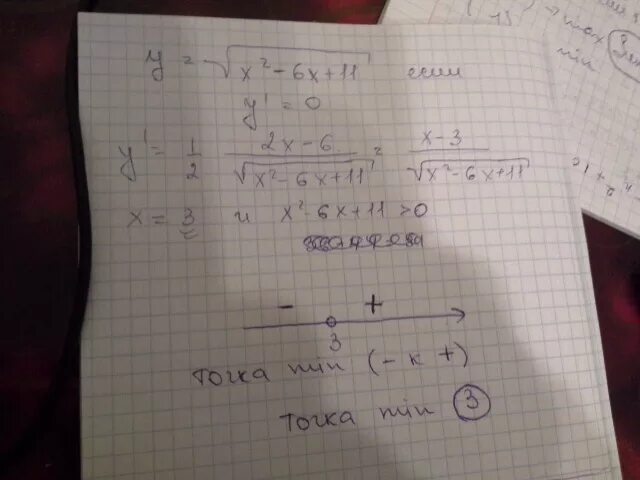 y = √(x² - 6x + 11) если
y' = 0
y' = 1/2 (2x - 6)/√(x² - 6x + 11) = (x - 3)/√(x² - 6x + 11)
x = 3 и x² - 6x + 11 > 0
- +
3
точка min (- к +)
точка min 3
max
min